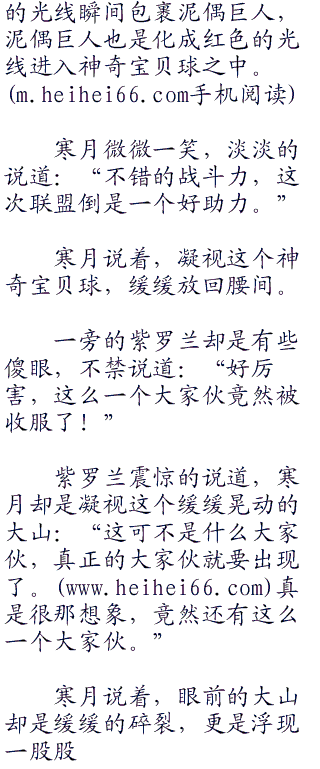 的光线瞬间包裹泥偶巨人，
泥偶巨人也是化成红色的光
线进入神奇宝贝球之中。
(m.heihei66.com手机阅读)
寒月微微一笑，淡淡的
说道：“不错的战斗力，这
次联盟倒是一个好助力。”
寒月说着，凝视这个神
奇宝贝球，缓缓放回腰间。
一旁的紫罗兰却是有些
傻眼，不禁说道：“好厉
害，这么一个大家伙竟然被
收服了！”
紫罗兰震惊的说道，寒
月却是凝视这个缓缓晃动的
大山：“这可不是什么大家
伙，真正的大家伙就要出现
了。(www.heihei66.com)真
是很那想象，竟然还有这么
一个大家伙。”
寒月说着，眼前的大山
却是缓缓的碎裂，更是浮现
一股股